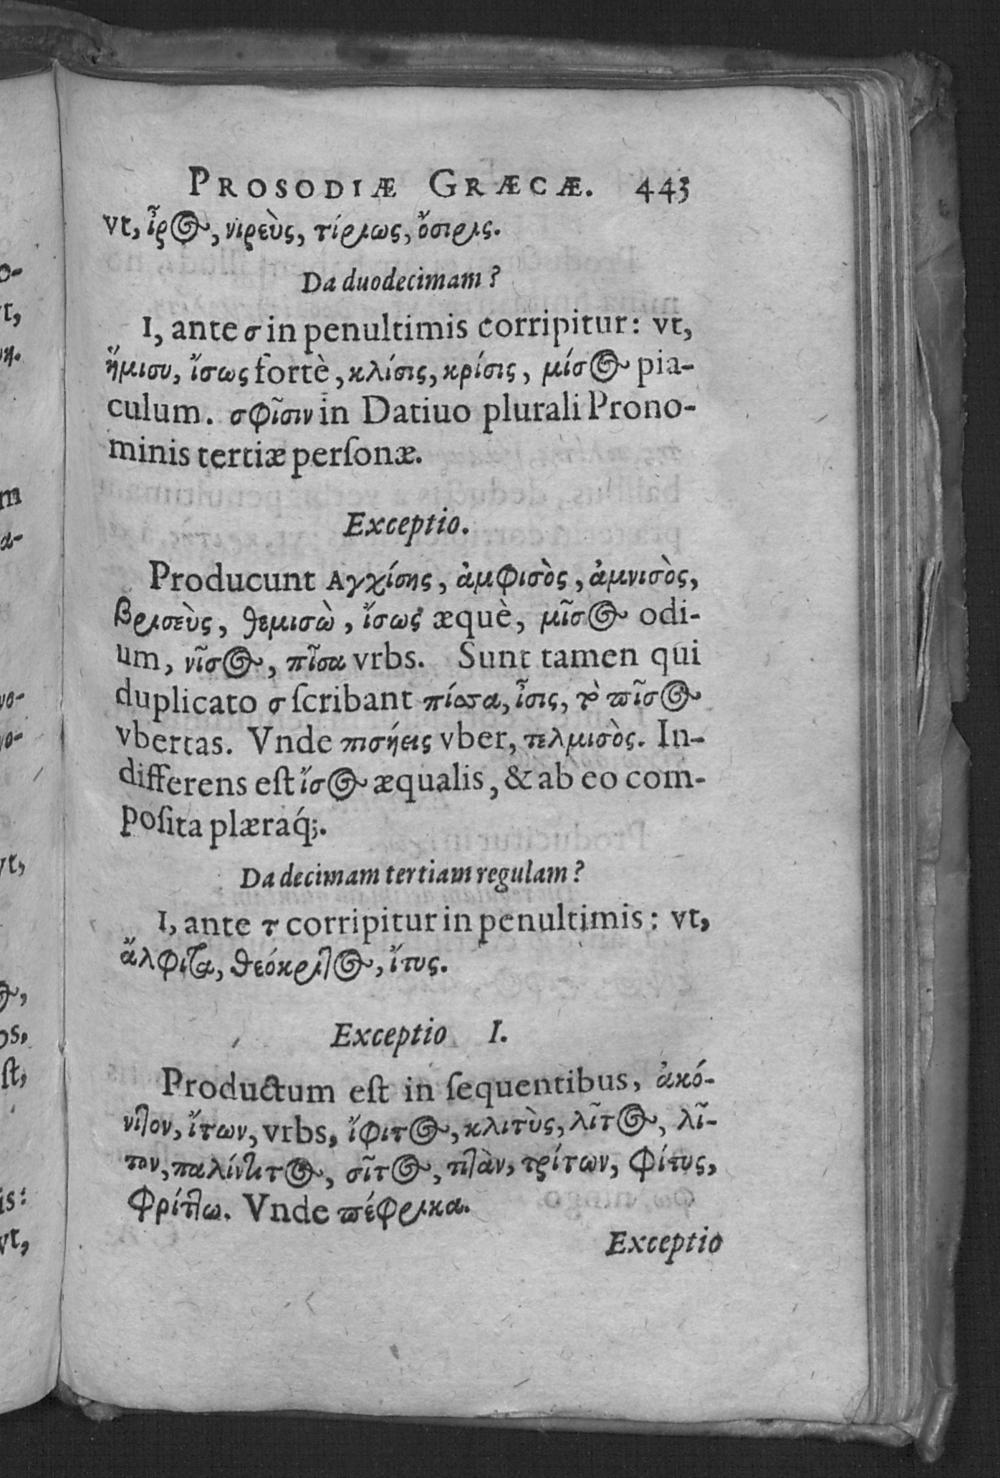 PROSODIÆ GRÆCÆ. 443
vt, ἶρος, νιρεὺς, τίριως, ὄσιρις.
Da duodecimam?
I, ante σ in penultimis corripitur: vt,
ἥμισυ, ἴσως fortè, κλίσις, κρίσις, μίσος pia-
culum. σφῖσιν in Datiuo plurali Prono-
minis tertiæ perſonæ.
Exceptio.
Producunt Αγχίσης, ἀμφισὸς, ἀμνισὸς,
βρισεὺς, θεμισὼ, ἴσως æquè, μῖσος odi-
um, νῖσος, πῖσα vrbs. Sunt tamen qui
duplicato σ ſcribant πίσσα, ἶσις, τὸ πῖσος
vbertas. Vnde πισήεις vber, τελμισὸς. In-
differens eſt ἴσος æqualis, & ab eo com-
poſita plæraq́;.
Da decimam tertiam regulam?
I, ante τ corripitur in penultimis: vt,
ἄλφιτα, θεόκριτος, ἴτυς.
Exceptio I.
Productum eſt in ſequentibus, ἀκό-
νιτον, ἴτων, vrbs, ἴφιτος, κλιτὺς, λῖτος, λῖ-
τον, παλίντιτος, σῖτος, τιτὰν, τρίτων, φίτυς,
φρίττω. Vnde πέφρικα.
Exceptio